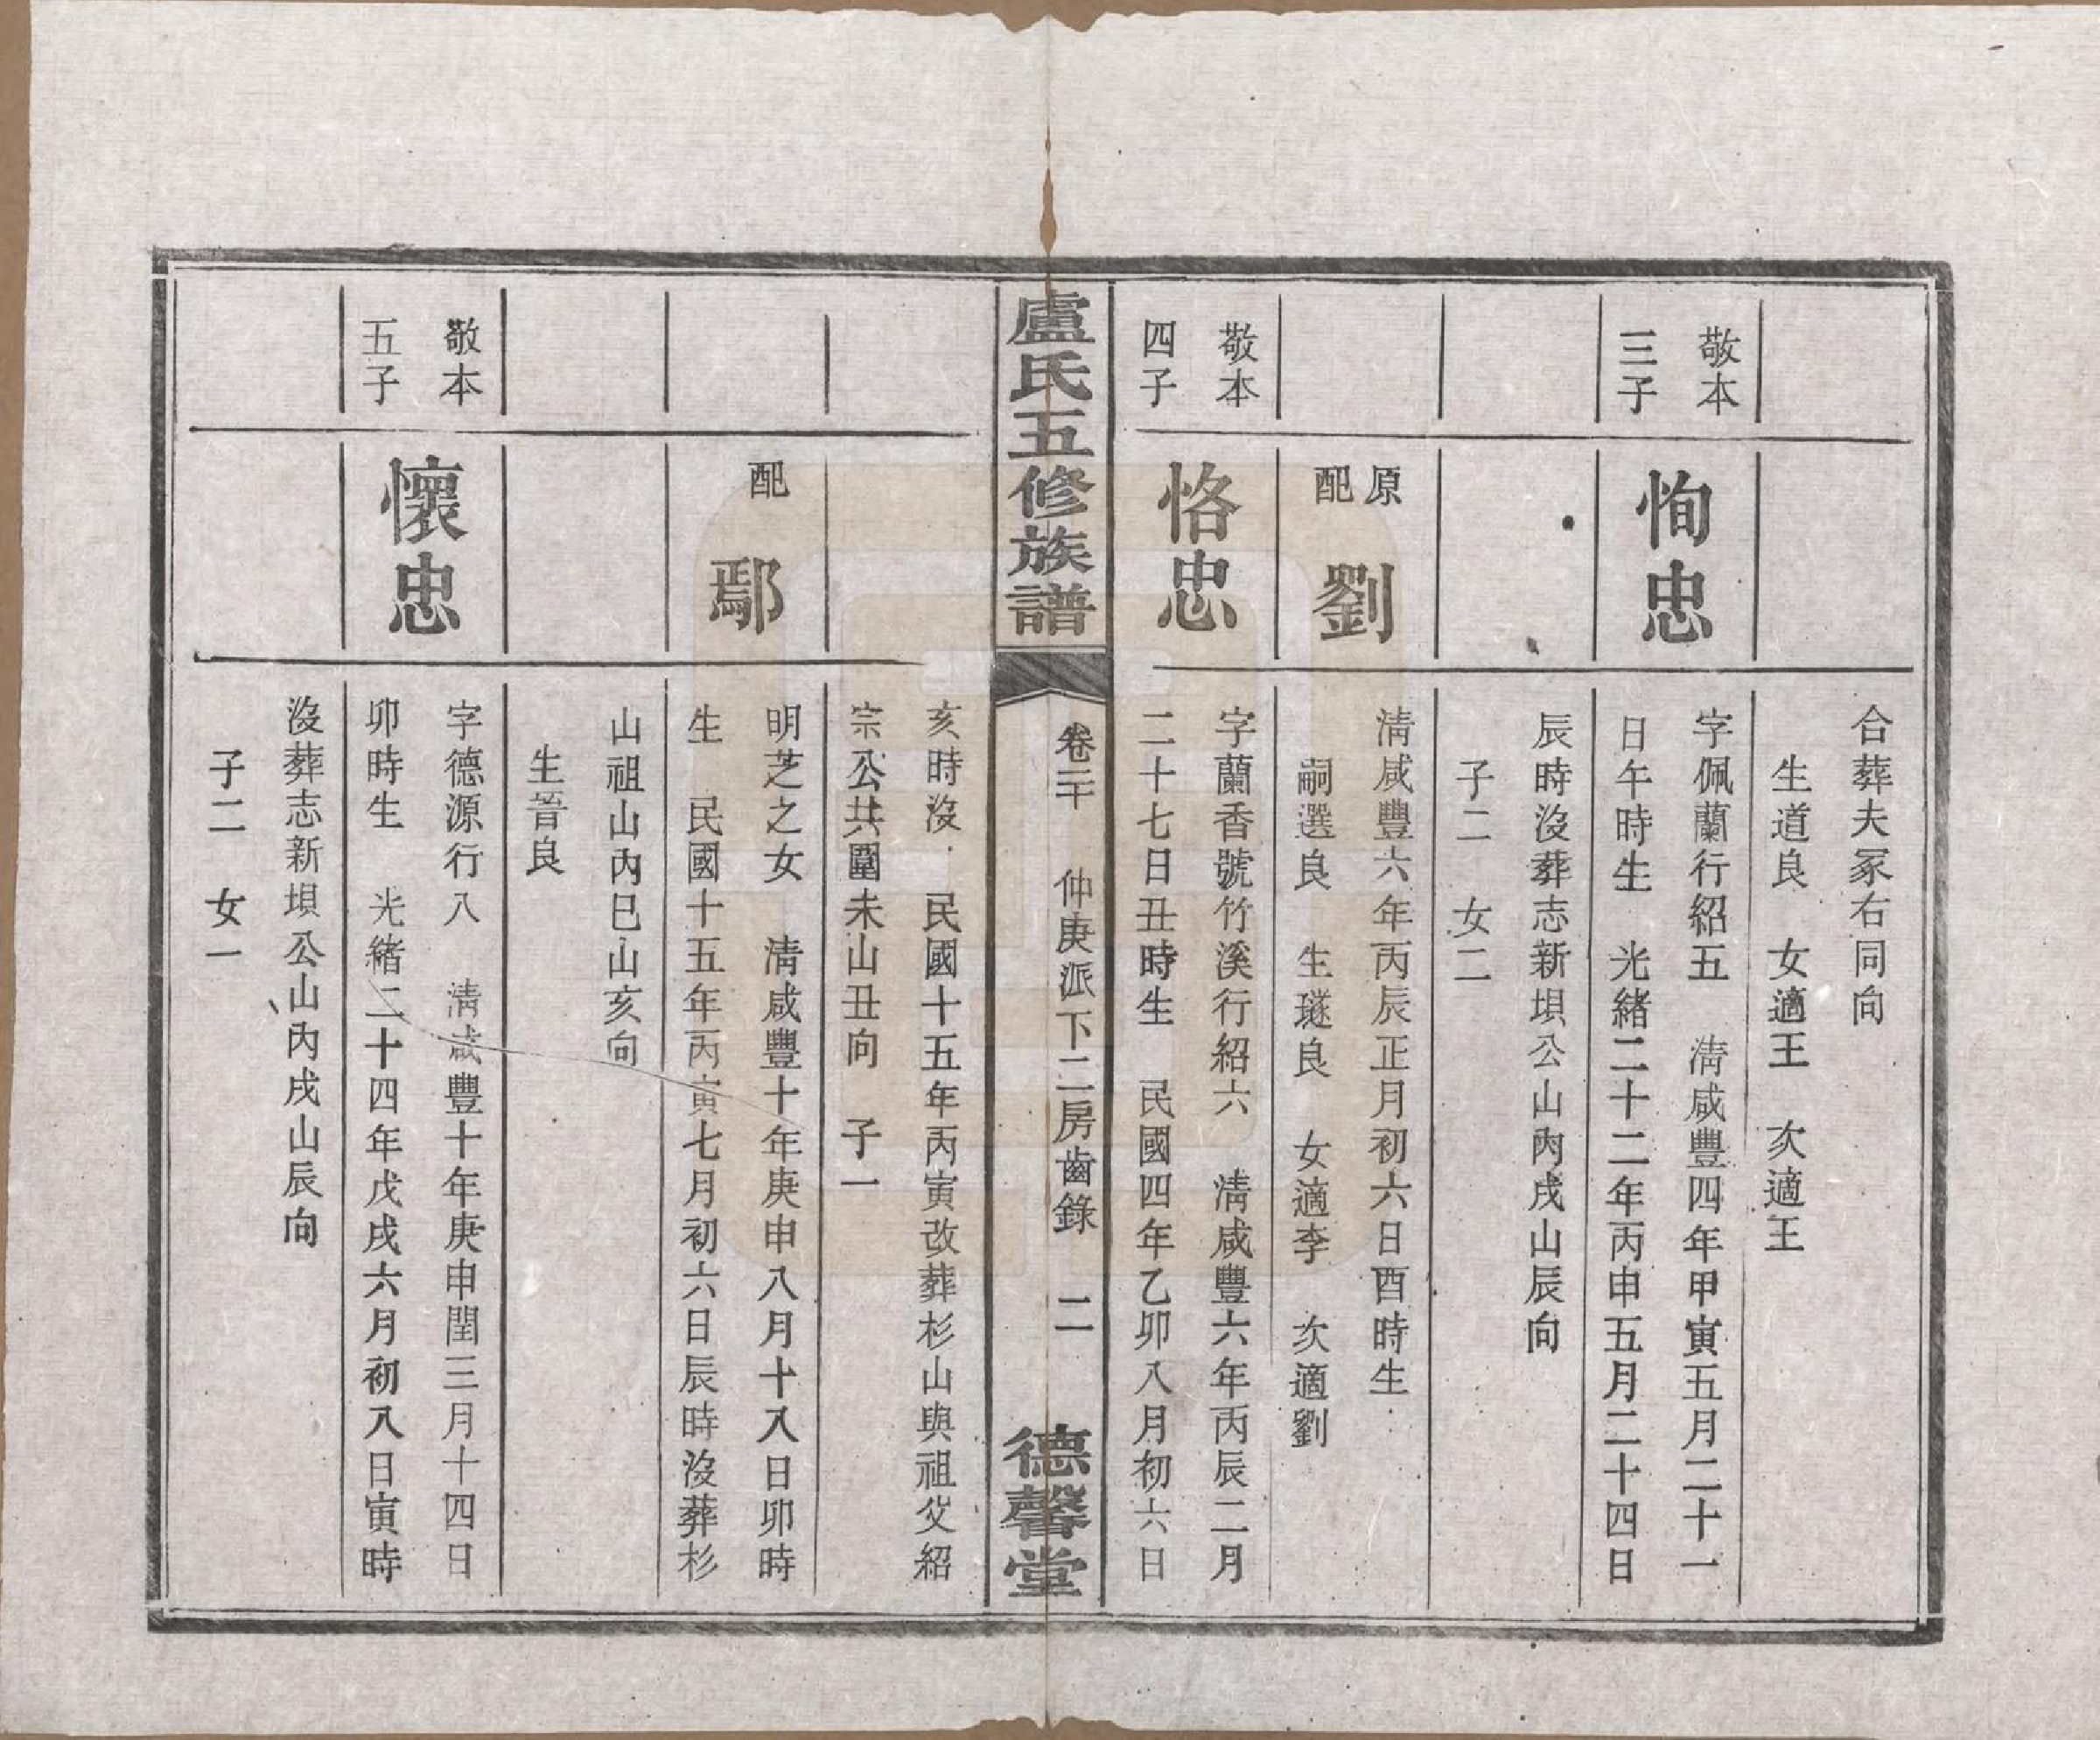 合葬夫冢右同向
生道良　女適王　次適王
敬本
三子
恂忠
字佩蘭行紹五　清咸豐四年甲寅五月二十一
日午時生　光緒二十二年丙申五月二十四日
辰時沒葬志新垻公山內戌山辰向
子二　女二
原
配
劉
清咸豐六年丙辰正月初六日酉時生
嗣選良　生璲良　女適李　次適劉
敬本
四子
恪忠
字蘭香號竹溪行紹六　清咸豐六年丙辰二月
二十七日丑時生　民國四年乙卯八月初六日
盧氏五修族譜
卷二十　仲庚派下二房齒錄　二
德馨堂
亥時沒　民國十五年丙寅改葬杉山與祖父紹
宗公共圍未山丑向　子一
配
鄢
明芝之女　清咸豐十年庚申八月十八日卯時
生　民國十五年丙寅七月初六日辰時沒葬杉
山祖山內巳山亥向
生晉良
敬本
五子
懷忠
字德源行八　清咸豐十年庚申閏三月十四日
卯時生　光緒二十四年戊戌六月初八日寅時
沒葬志新垻公山內戌山辰向
子二　女一